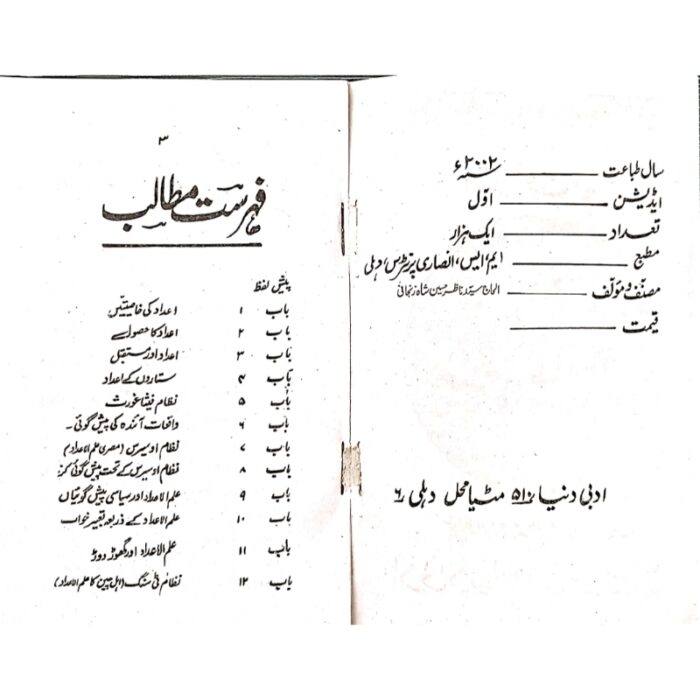 سال طباعت ــــــــــ سنہ ۲۰۰۲ء
ایڈیشن ــــــــــ اوّل
تعداد ــــــــــ ایک ہزار
مطبع ــــــــــ ایم، ایس، انصاری پرنٹرس، دہلی
مصنف و مؤلف ــــــــــ الحاج سید ناظر حسین شاہ زنجانی
قیمت ــــــــــ
ادبی دنیا ۵۱۰ مٹیا محل دہلی ۶
۳
فہرست مطالب
پیش لفظ
باب ۱ اعداد کی خاصیتیں
باب ۲ اعداد کا حصول
باب ۳ اعداد اور مستقبل
باب ۴ ستاروں کے اعداد
باب ۵ نظام فیثاغورث
باب ۶ واقعات آئندہ کی پیش گوئی۔
باب ۷ نظام اوسیرس (مصری علم الاعداد)
باب ۸ نظام اوسیرس کے تحت پیش گوئی کرنا
باب ۹ علم الاعداد اور سیاسی پیش گوئیاں
باب ۱۰ علم الاعداد کے ذریعہ تعبیر خواب
باب ۱۱ علم الاعداد اور گھوڑ دوڑ
باب ۱۲ نظام ئی سنگ (اہل چین کا علم الاعداد)